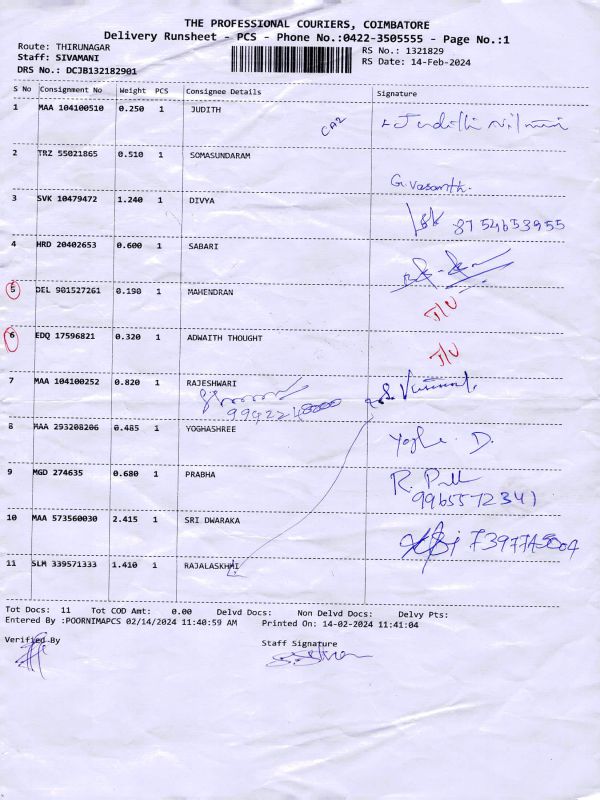 THE PROFESSIONAL COURIERS, COIMBATORE
Delivery Runsheet - PCS - Phone No.:0422-3505555 - Page No.:1
Route: THIRUNAGAR
RS No.: 1321829
Staff: SIVAMANI
RS Date: 14-Feb-2024
DRS No.: DCJB132182901
S No Consignment No Weight PCS Consignee Details Signature
1 MAA 104100510 0.250 1 JUDITH
2 TRZ 55021865 0.510 1 SOMASUNDARAM
G. Vasanth.
3 SVK 10479472 1.240 1 DIVYA
8754653955
4 HRD 20402653 0.600 1 SABARI
5 DEL 901527261 0.190 1 MAHENDRAN
6 EDQ 17596821 0.320 1 ADWAITH THOUGHT
7 MAA 104100252 0.820 1 RAJESHWARI
8 MAA 293208206 0.485 1 YOGHASHREE
Yogha. D.
9 MGD 274635 0.680 1 PRABHA
9965572341
10 MAA 573560030 2.415 1 SRI DWARAKA
11 SLM 339571333 1.410 1 RAJALASKHMI
Tot Docs: 11 Tot COD Amt: 0.00 Delvd Docs: Non Delvd Docs: Delvy Pts:
Entered By :POORNIMAPCS 02/14/2024 11:40:59 AM Printed On: 14-02-2024 11:41:04
Verified By
Staff Signature